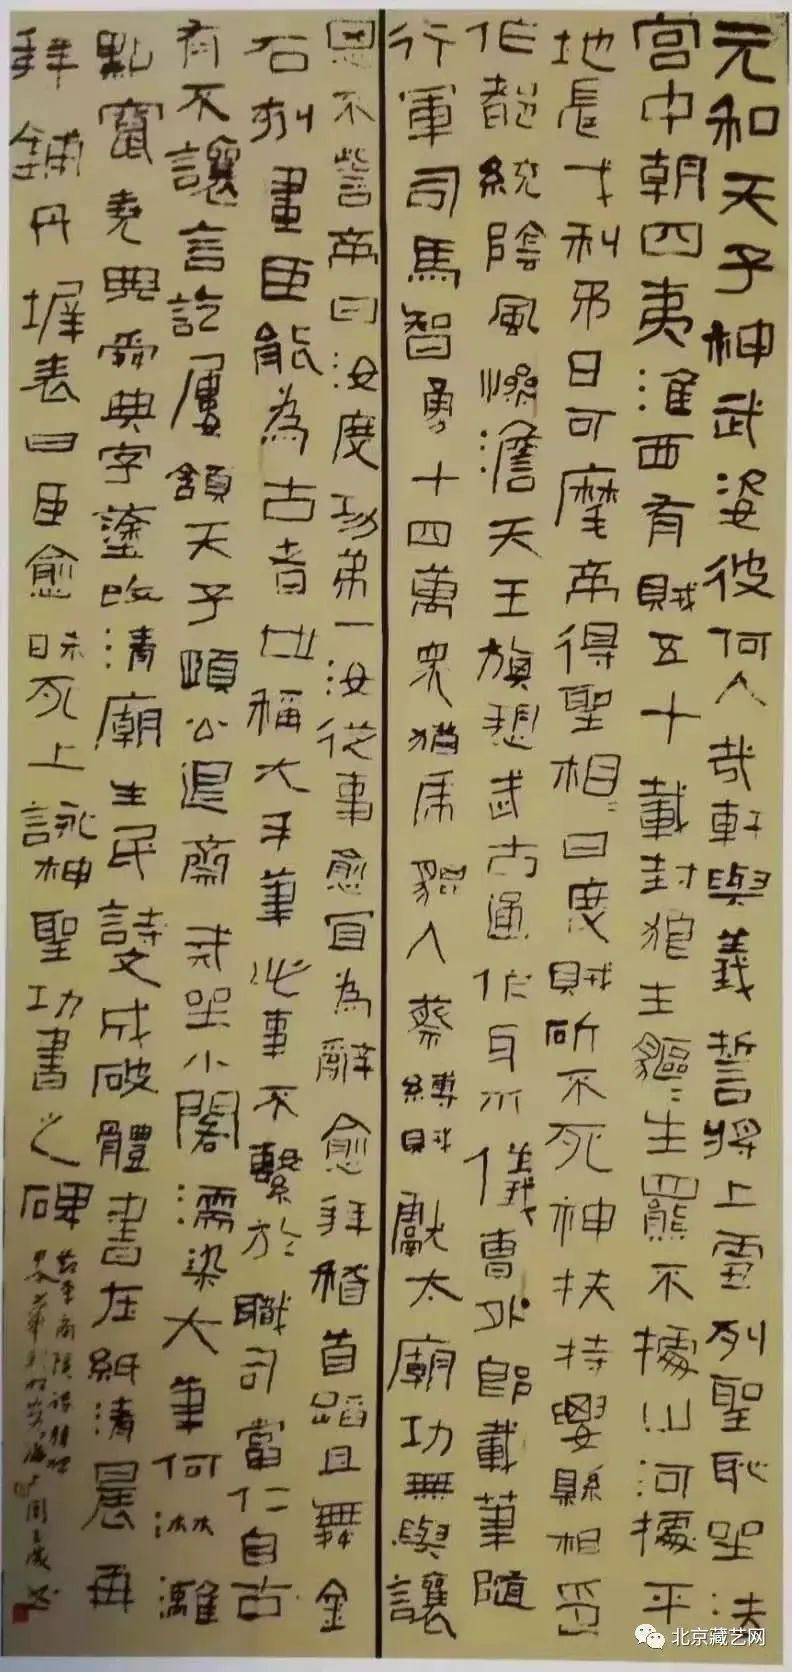 元和天子神武姿彼何人哉軒與義誓將上雪列聖恥坐法
宮中朝四夷淮西有賊五十載封狼生貙〻生羆不據山河據平
地長戈利矛日可麾帝得聖相〻曰度賊斫不死神扶持腰懸相印
作都統陰風慘澹天王旗愬武古通作牙爪儀曹外郎載筆隨
行軍司馬智勇十四萬眾猶虎貔入蔡縛賊獻太廟功無與讓
恩不訾帝曰汝度功弟一汝從事愈宜為辭愈拜稽首蹈且舞金
石刻畫臣能為古者世稱大手筆此事不繫於職司當仁自古
有不讓言訖屢頷天子頤公退齋戒坐小閣濡染大筆何淋漓
點竄堯典舜典字塗改清廟生民詩文成破體書在紙清晨再
拜鋪丹墀表曰臣愈昧死上詠神聖功書之碑
李商隱詩韓碑
北京藏艺网